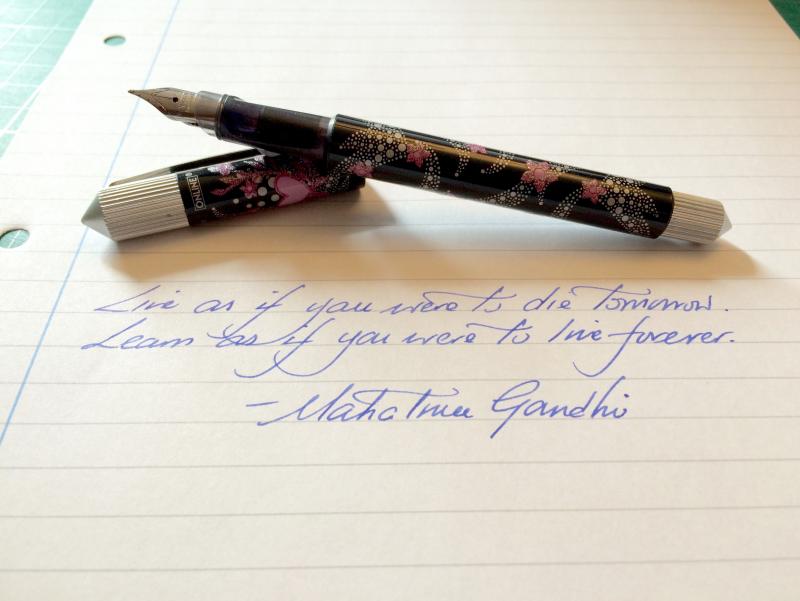 ONLINE
Live as if you were to die tomorrow.
Learn as if you were to live forever.
- Mahatma Gandhi